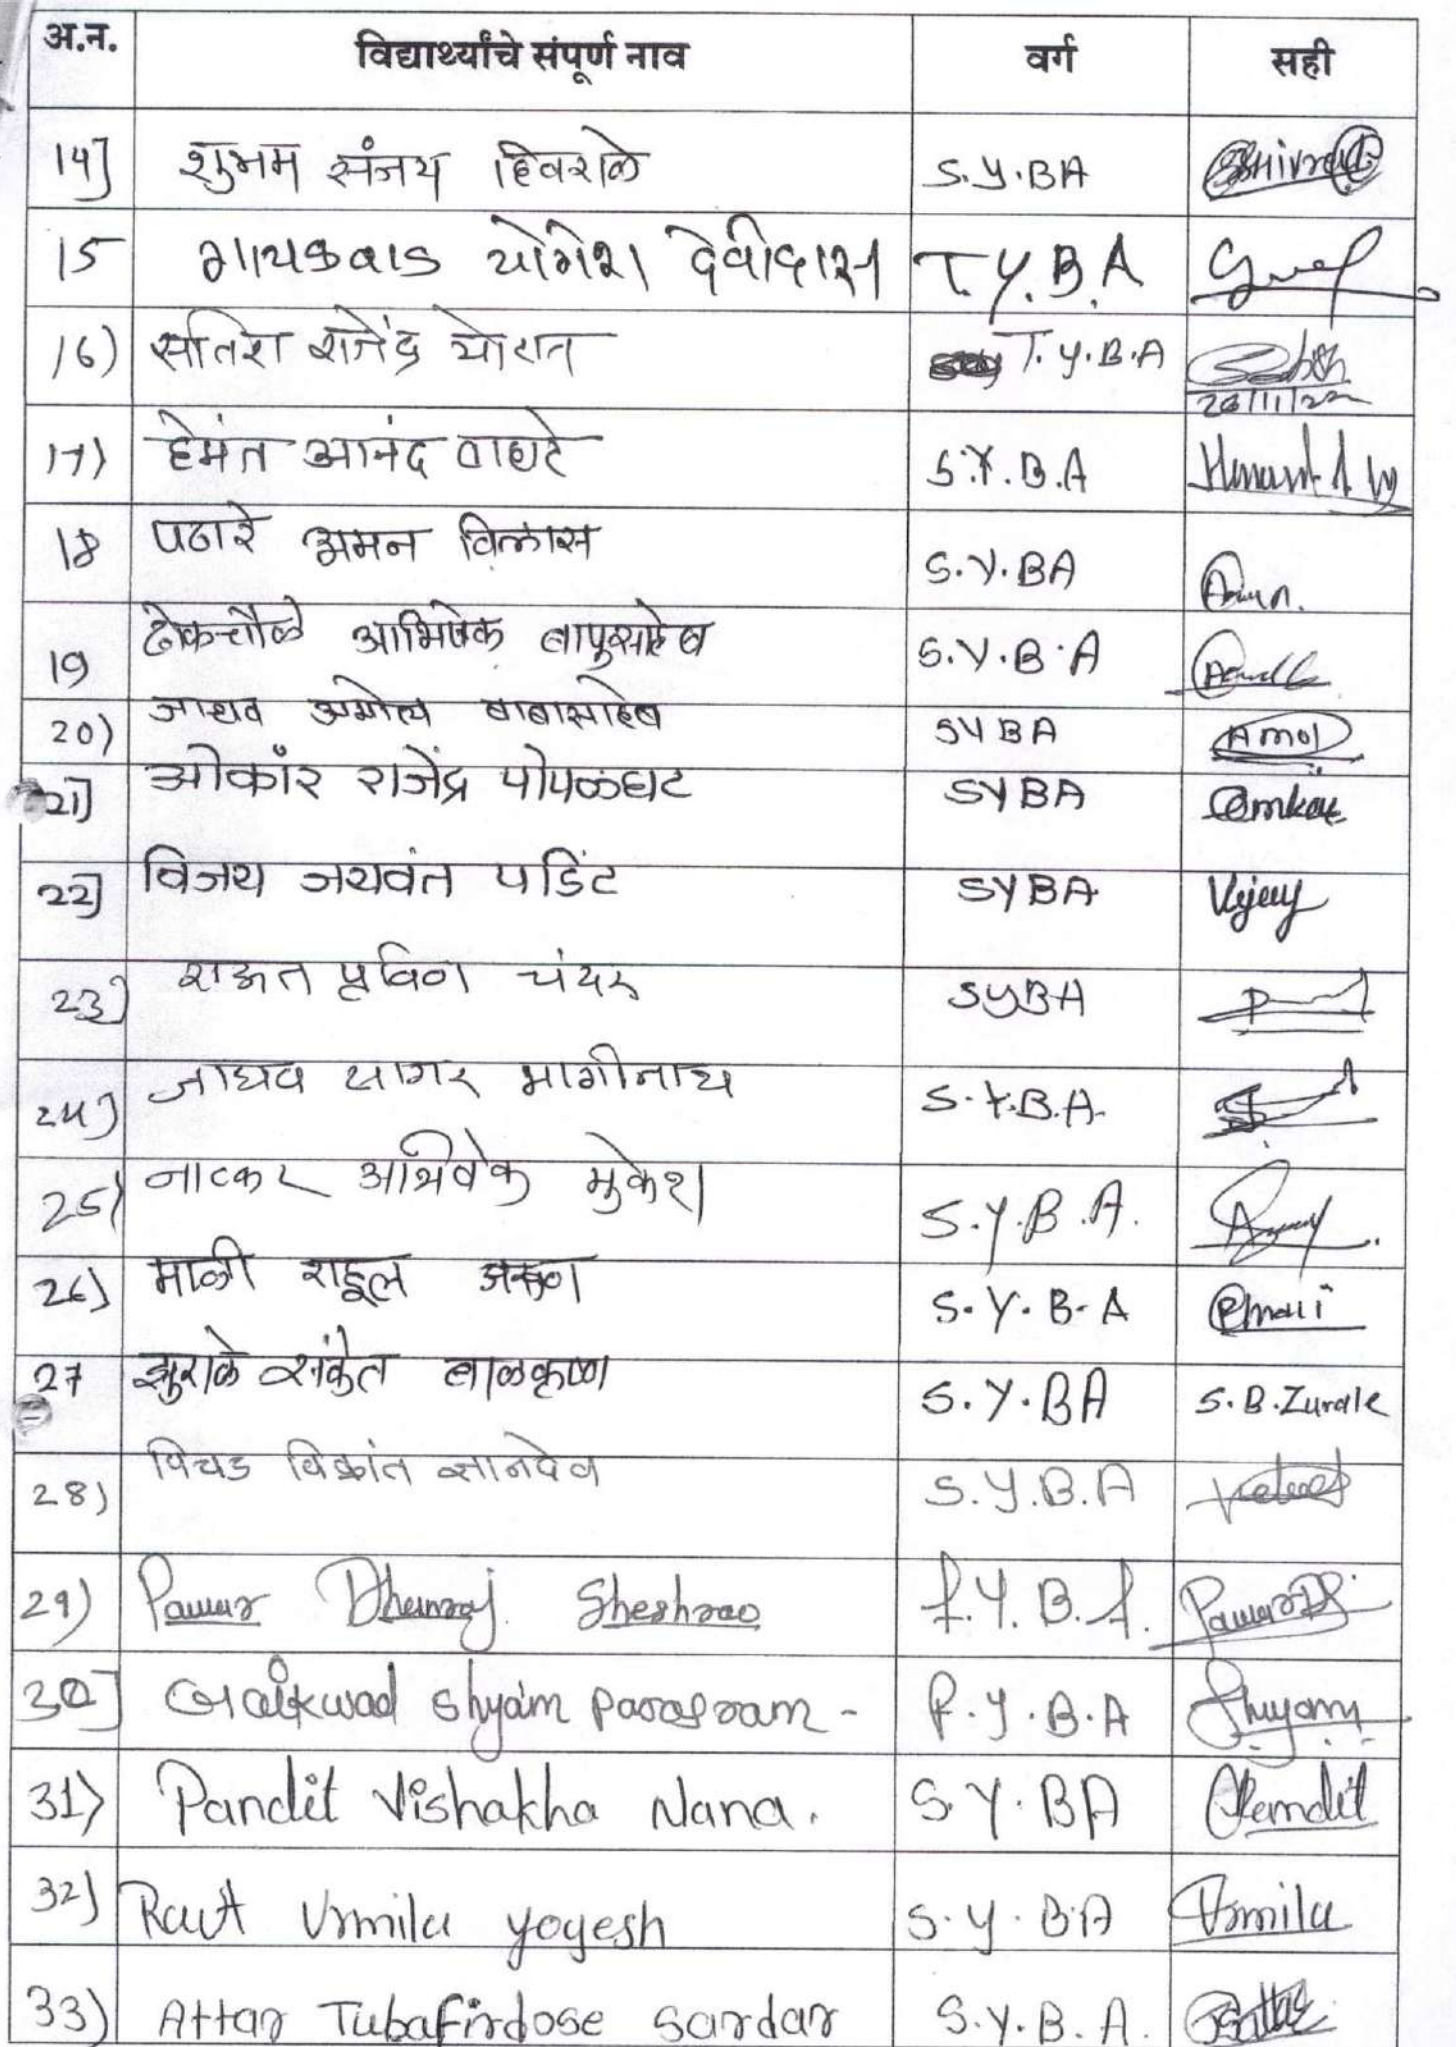 अ.न. विद्यार्थ्यांचे संपूर्ण नाव वर्ग सही
14] शुभम संजय हिवराळे S.Y.BA
15 गायकवाड योगेश देवीदास T.Y.B.A
16) सतिश राजेंद्र थोरात T.Y.B.A 26/11/22
17) हेमंत आनंद वाघटे S.Y.B.A
18 पठारे अमन विलास S.Y.BA
19 ढोकचौळे अभिषेक बापुसाहेब S.Y.B.A
20) जाधव अमोल बाबासाहेब SYBA Amol
21] ओकाँर राजेंद्र पोपळघट SYBA Omkar
22] विजय जयवंत पडिंट SYBA Vijay
23] राऊत प्रविण चंदर SYBA
24] जाधव सागर भागीनाथ S.Y.B.A.
25) नाटकर अभिषेक मुकेश S.Y.B.A.
26) माळी राहूल अरुण S.Y.B.A RMali
27 झुराळे संकेत बाळकृष्ण S.Y.BA S.B.Zurale
28) पिचड विक्रांत ज्ञानदेव S.Y.B.A
29) Pawar Dhanraj Sheshrao F.Y.B.A. Pawar DS
30] Gaikwad Shyam Parasram - F.Y.B.A Shyam
31) Pandit Vishakha Nana. S.Y.BA Pandit
32) Raut Urmila yogesh S.Y.B.A Urmila
33) Attar Tubafirdose Sardar S.Y.B.A.